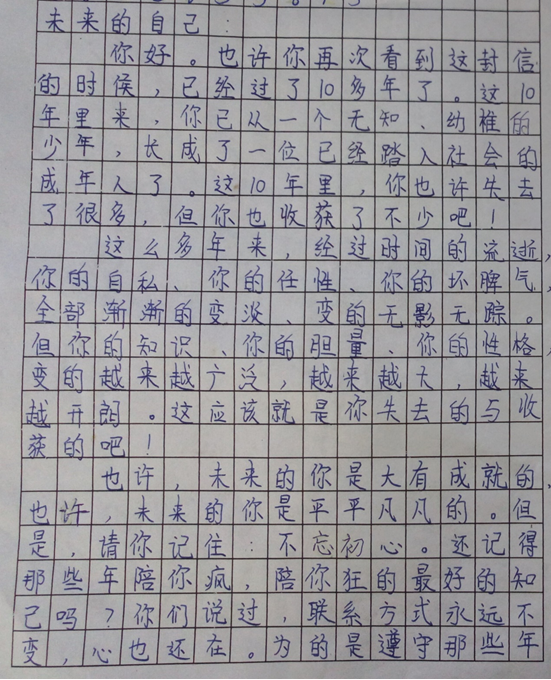 未来的自己：
你好。也许你再次看到这封信
的时候，已经过了10多年了。这10
年里来，你已从一个无知、幼稚的
少年，长成了一位已经踏入社会的
成年人了。这10年里，你也许失去
了很多，但你也收获了不少吧！
这么多年来，经过时间的流逝，
你的自私、你的任性、你的坏脾气，
全部渐渐的变淡、变的无影无踪。
但你的知识、你的胆量、你的性格，
变的越来越广泛，越来越大，越来
越开朗。这应该就是你失去的与收
获的吧！
也许，未来的你是大有成就的，
也许，未来的你是平平凡凡的。但
是，请你记住：不忘初心。还记得
那些年陪你疯，陪你狂的最好的知
己吗？你们说过，联系方式永远不
变，心也还在。为的是遵守那些年